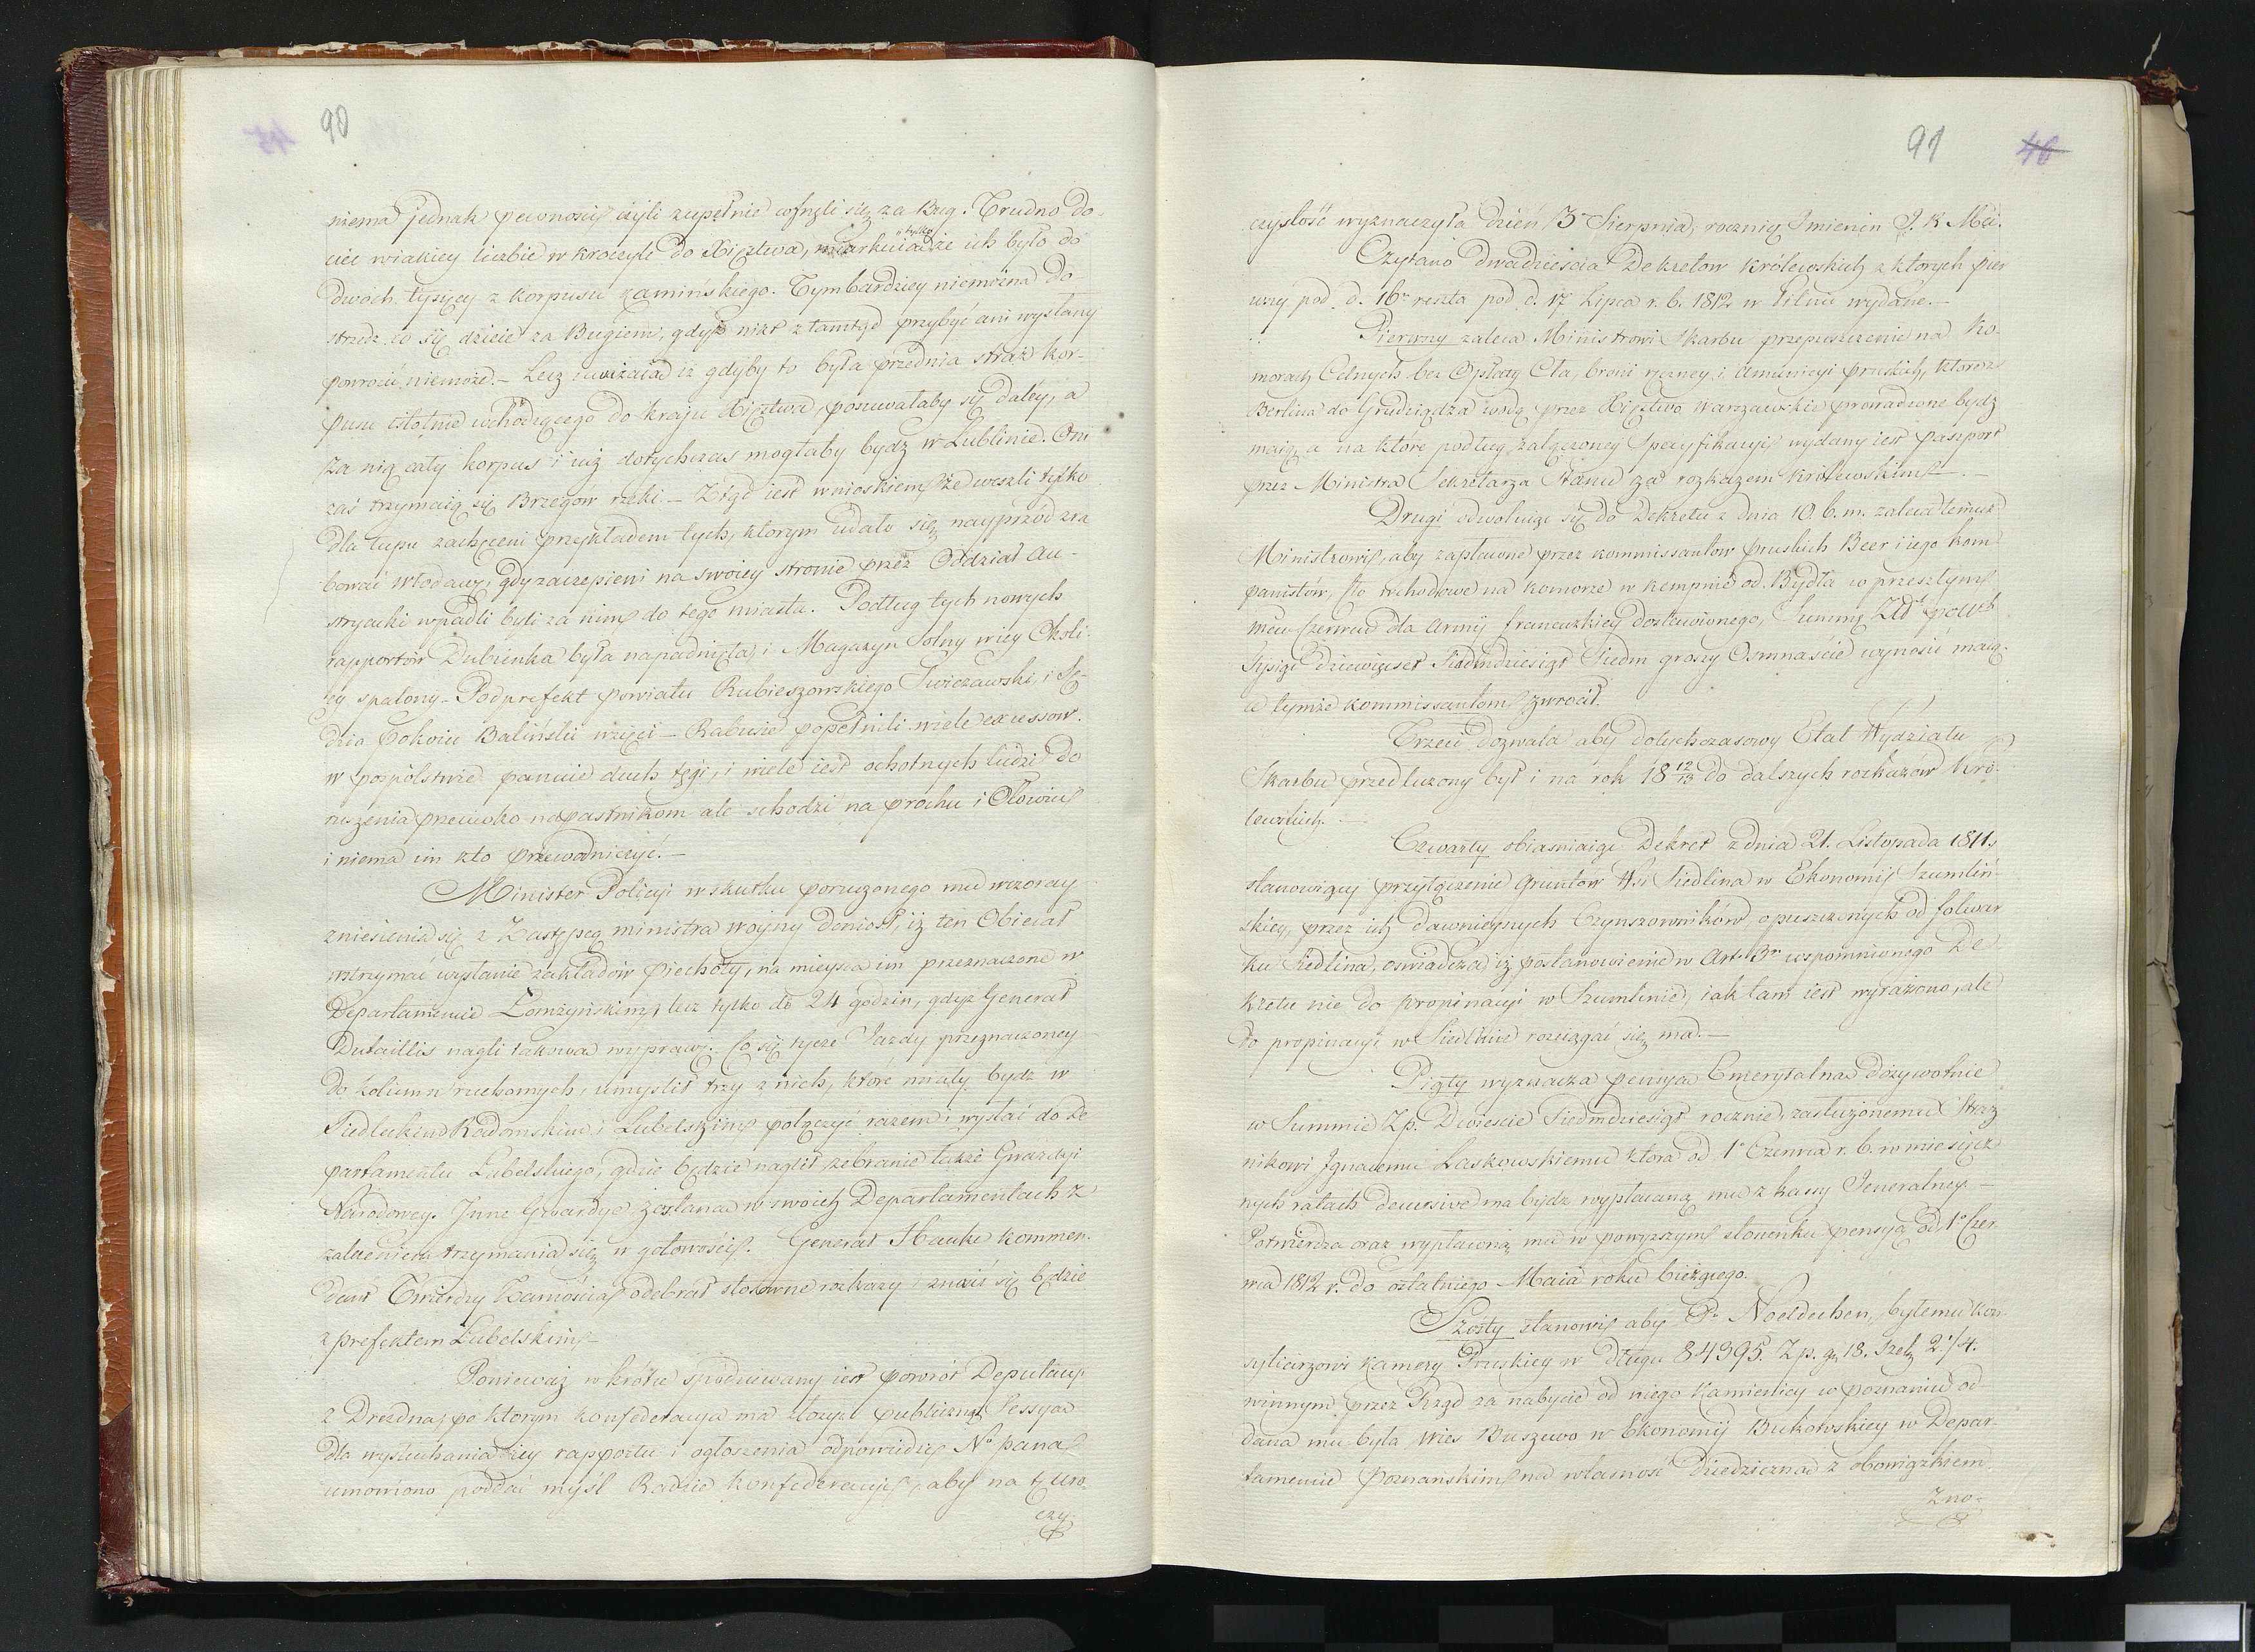 90
niema jednak pewności czyli zupełnie cofnęli się za Bug. Trudno do-
ciec wiakiey liczbie wkroczyli do Xięztwa, tylko że ich było do
dwóch tysięcy z korpusu Kamińskiego. Tymbardziey niemożna do-
strzedz co się dzieie za Bugiem, gdyż nikt z tamtąd przybyć ani wysłany
powrócić niemoże. – Lecz uważaiąc iż gdyby to była przednia straż kor-
pusu istotnie wchodzącego do kraju Xięztwa, posuwałaby się daléy, a
za nią cały korpus i iuż dotychczas mogłaby bydź w Lublinie. Oni
zaś trzymaią się Brzegów rzeki – Ztąd iest wnioskiem że weszli tylko
dla łupu zachęceni przykładem tych, ktorym udało się nayprzód zra
bować Włodawę, gdy zaczepieni na swoiey stronie przez Oddział Au-
stryacki wpadli byli za nim do tego miasta. Podług tych nowych
rapportów Dubienka była napadnięta, i Magazyn Solny wiey Okoli-
cy spalony – Podprefekt powiatu Rubieszowskiego i Sę-
dzia Pokoiu Baliński wzięci – Rabusie popełnili wiele excessow.
w pospólstwie panuie duch tęgi, i wiele iest ochotnych ludzi do
ruszenia przeciwko napastnikom ale schodzi na prochu i Ołowiu
i niema im kto przewodniczyć. –
Minister Policyi wskutku poruczonego mu wczoray
zniesienia się z Zastępcą ministra woyny doniosł, iż ten Obiecał
wstrzymać wysłanie zakładów piechoty, na mieysca im przeznaczone w
Departamencie Łomżyńskim, lecz tylko do 24 godzin, gdyż Generał
Dutaillis nagli takowa wyprawę. Co się tycze Jazdy przeznaczoney
do kolumn ruchomych, umyślił trzy z nich, które miały bydź w
Siedleckim Radomskim i Lubelskim połączyć razem i wysłać do De
partamentu Lubelskiego, gdzie będzie naglił zebranie także Gwardyi
Narodowey. Jnne Gwardye zostaną w swoich Departamentach z
zaleceniem trzymania się w gotowości. Generał Hauke kommen-
dant Twierdzy Zamościa odebrał stosowne rozkazy i znosić się będzie
z prefektem Lubelskim –
Ponieważ wkrótce spodziewany iest powrót Deputacyi
z Drezna, po ktorym konfederacya ma złożyć publiczną Sessyą
dla wysłuchania iey rapportu i ogłoszenia odpowiedzi Nº pana
umówiono poddać myśl Radzie konfederacyi, aby na tę uro-
czy-
91
46
czystość wyznaczyła dzień 3º Sierpnia, rocznicę Jmienin J. K. Mci.
Czytano dwadzieścia Dekretow Królewskich z ktorych pier
wszy pod d. 16º reszta pod d. 17 Lipca r. b. 1812 w Pilnic wydane. –
Pierwszy zaleca Ministrowi Skarbu przepuszczenie na Ko-
morach Celnych bez Opłaty Cła, broni ręczney i Amunicyi pruskich, ktore z
Berlina do Grudziądza wodą przez Xięztwo Warszawskie prowadzone bydź
maią, a na które podług załączoney Specyfikacyi wydany iest paszport
przez Ministra Sekretarza Stanu za rozkazem Królewskim –
Drugi odwołuiąc się do Dekretu z dnia 10. b. m. zaleca temuż
Ministrowi, aby zapłacone przez kommissantow pruskich Beer i iego kom
panistów, Cło wchodowe na komorze w Kempnie od Bydła w przeszłym
mcu Czerwcu dla Armij francuzkiey dostawionego, Summę
Tysiąc dziewięcset Siedmdziesiąt Siedm groszy Osmnaście wynosić maią-
ca tymże kommissantom zwrócił.
Trzeci dozwala aby dotychczasowy Etat Wydziału
Skarbu przedłużony był i na rok 18 12/13 do dalszych rozkazow Kró-
lewskich. –
Czwarty obiaśniaiąc Dekret z dnia 21. Listopada 1811.
stanowiący przyłączenie Gruntów Wsi Siedlina w Ekonomij Szumliń
skiey, przez ich dawnieyszych Czynszowników opuszczonych od folwar
ku Siedlina, oswiadcza iż postanowienie w Art. 3m wspomnionego De
kretu nie do propinacyi w Szumlinie, iak tam iest wyrażono, ale
do propinacyi w Siedlinie rozciągać się ma. –
Piąty wyznacza pensyą Emerytalną dożywotnie
w Summie Zp. Dwieście Siedmdziesiąt rocznie, zasłużonemu Straż
nikowi Jgnacemu Laskowskiemu ktora od 1º Czerwca r. b. w miesięcz
nych ratach decursive ma bydź wypłacaną mu z kassy Jeneralney. –
Potwierdza oraz wypłaconą mu w powyższym stosunku pensyą od 1º Czer
wca 1812 r. do ostatniego Maia roku bieżącego.
Szosty stanowi aby Pu Noeldechen, byłemu Kon-
syliarzowi Kamery Pruskiey w długu 84395. Zp. gr 18. Szel. 2 1/4.
winnym przez Rząd za nabycie od niego Kamienicy w Poznaniu od
dana mu była Wieś Buszewo w Ekonomij Bukowskiey w Depar-
tamencie Poznanskim na własność Dziedziczną z obowiązkiem
zno-